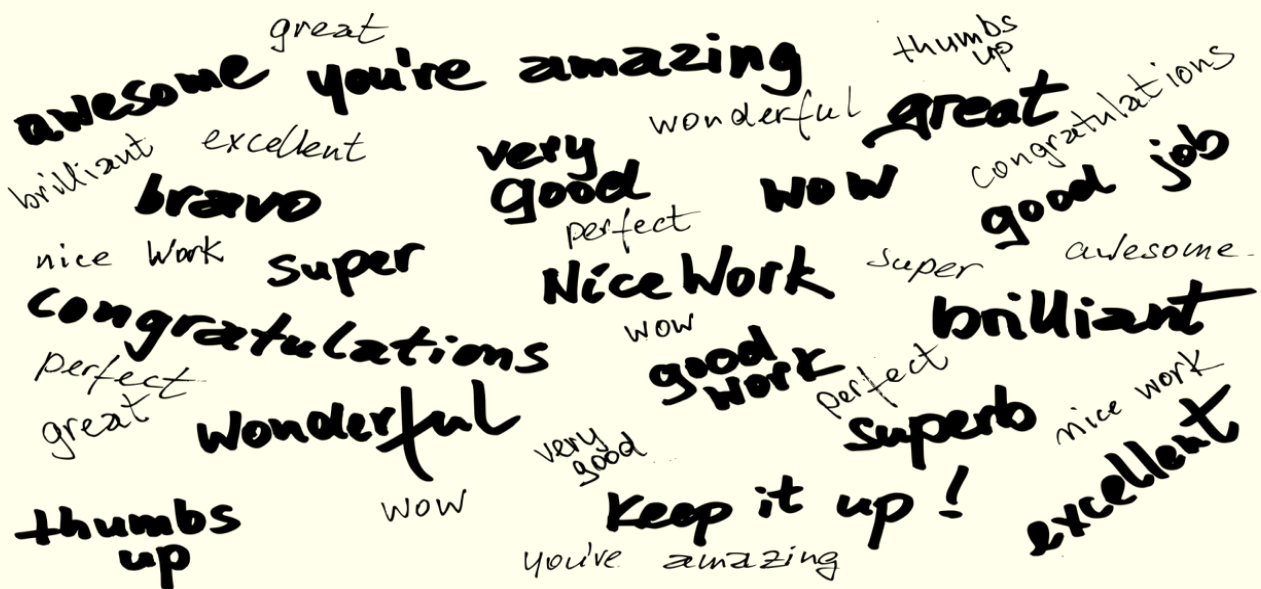 great
awesome
you're amazing
thumbs
up
congratulations
wonderful
great
brilliant
excellent
very
good
bravo
wow
good job
perfect
nice Work
super
Nice Work
super
awesome
congratulations
wow
brilliant
perfect
good
work
perfect
great
wonderful
superb
nice work
very
good
excellent
thumbs
up
wow
Keep it up!
you're amazing